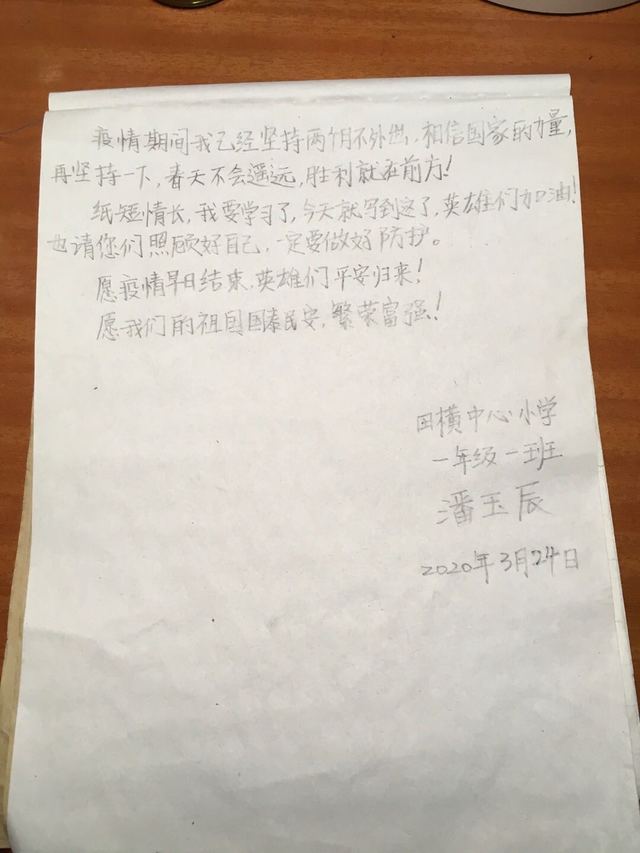 疫情期间我已经坚持两个月不外出，相信国家的力量，
再坚持一下，春天不会遥远，胜利就在前方！
纸短情长，我要学习了，今天就写到这了，英雄们加油！
也请您们照顾好自己，一定要做好防护。
愿疫情早日结束，英雄们平安归来！
愿我们的祖国国泰民安，繁荣富强！
田横中心小学
一年级一班
潘玉辰
2020年3月24日